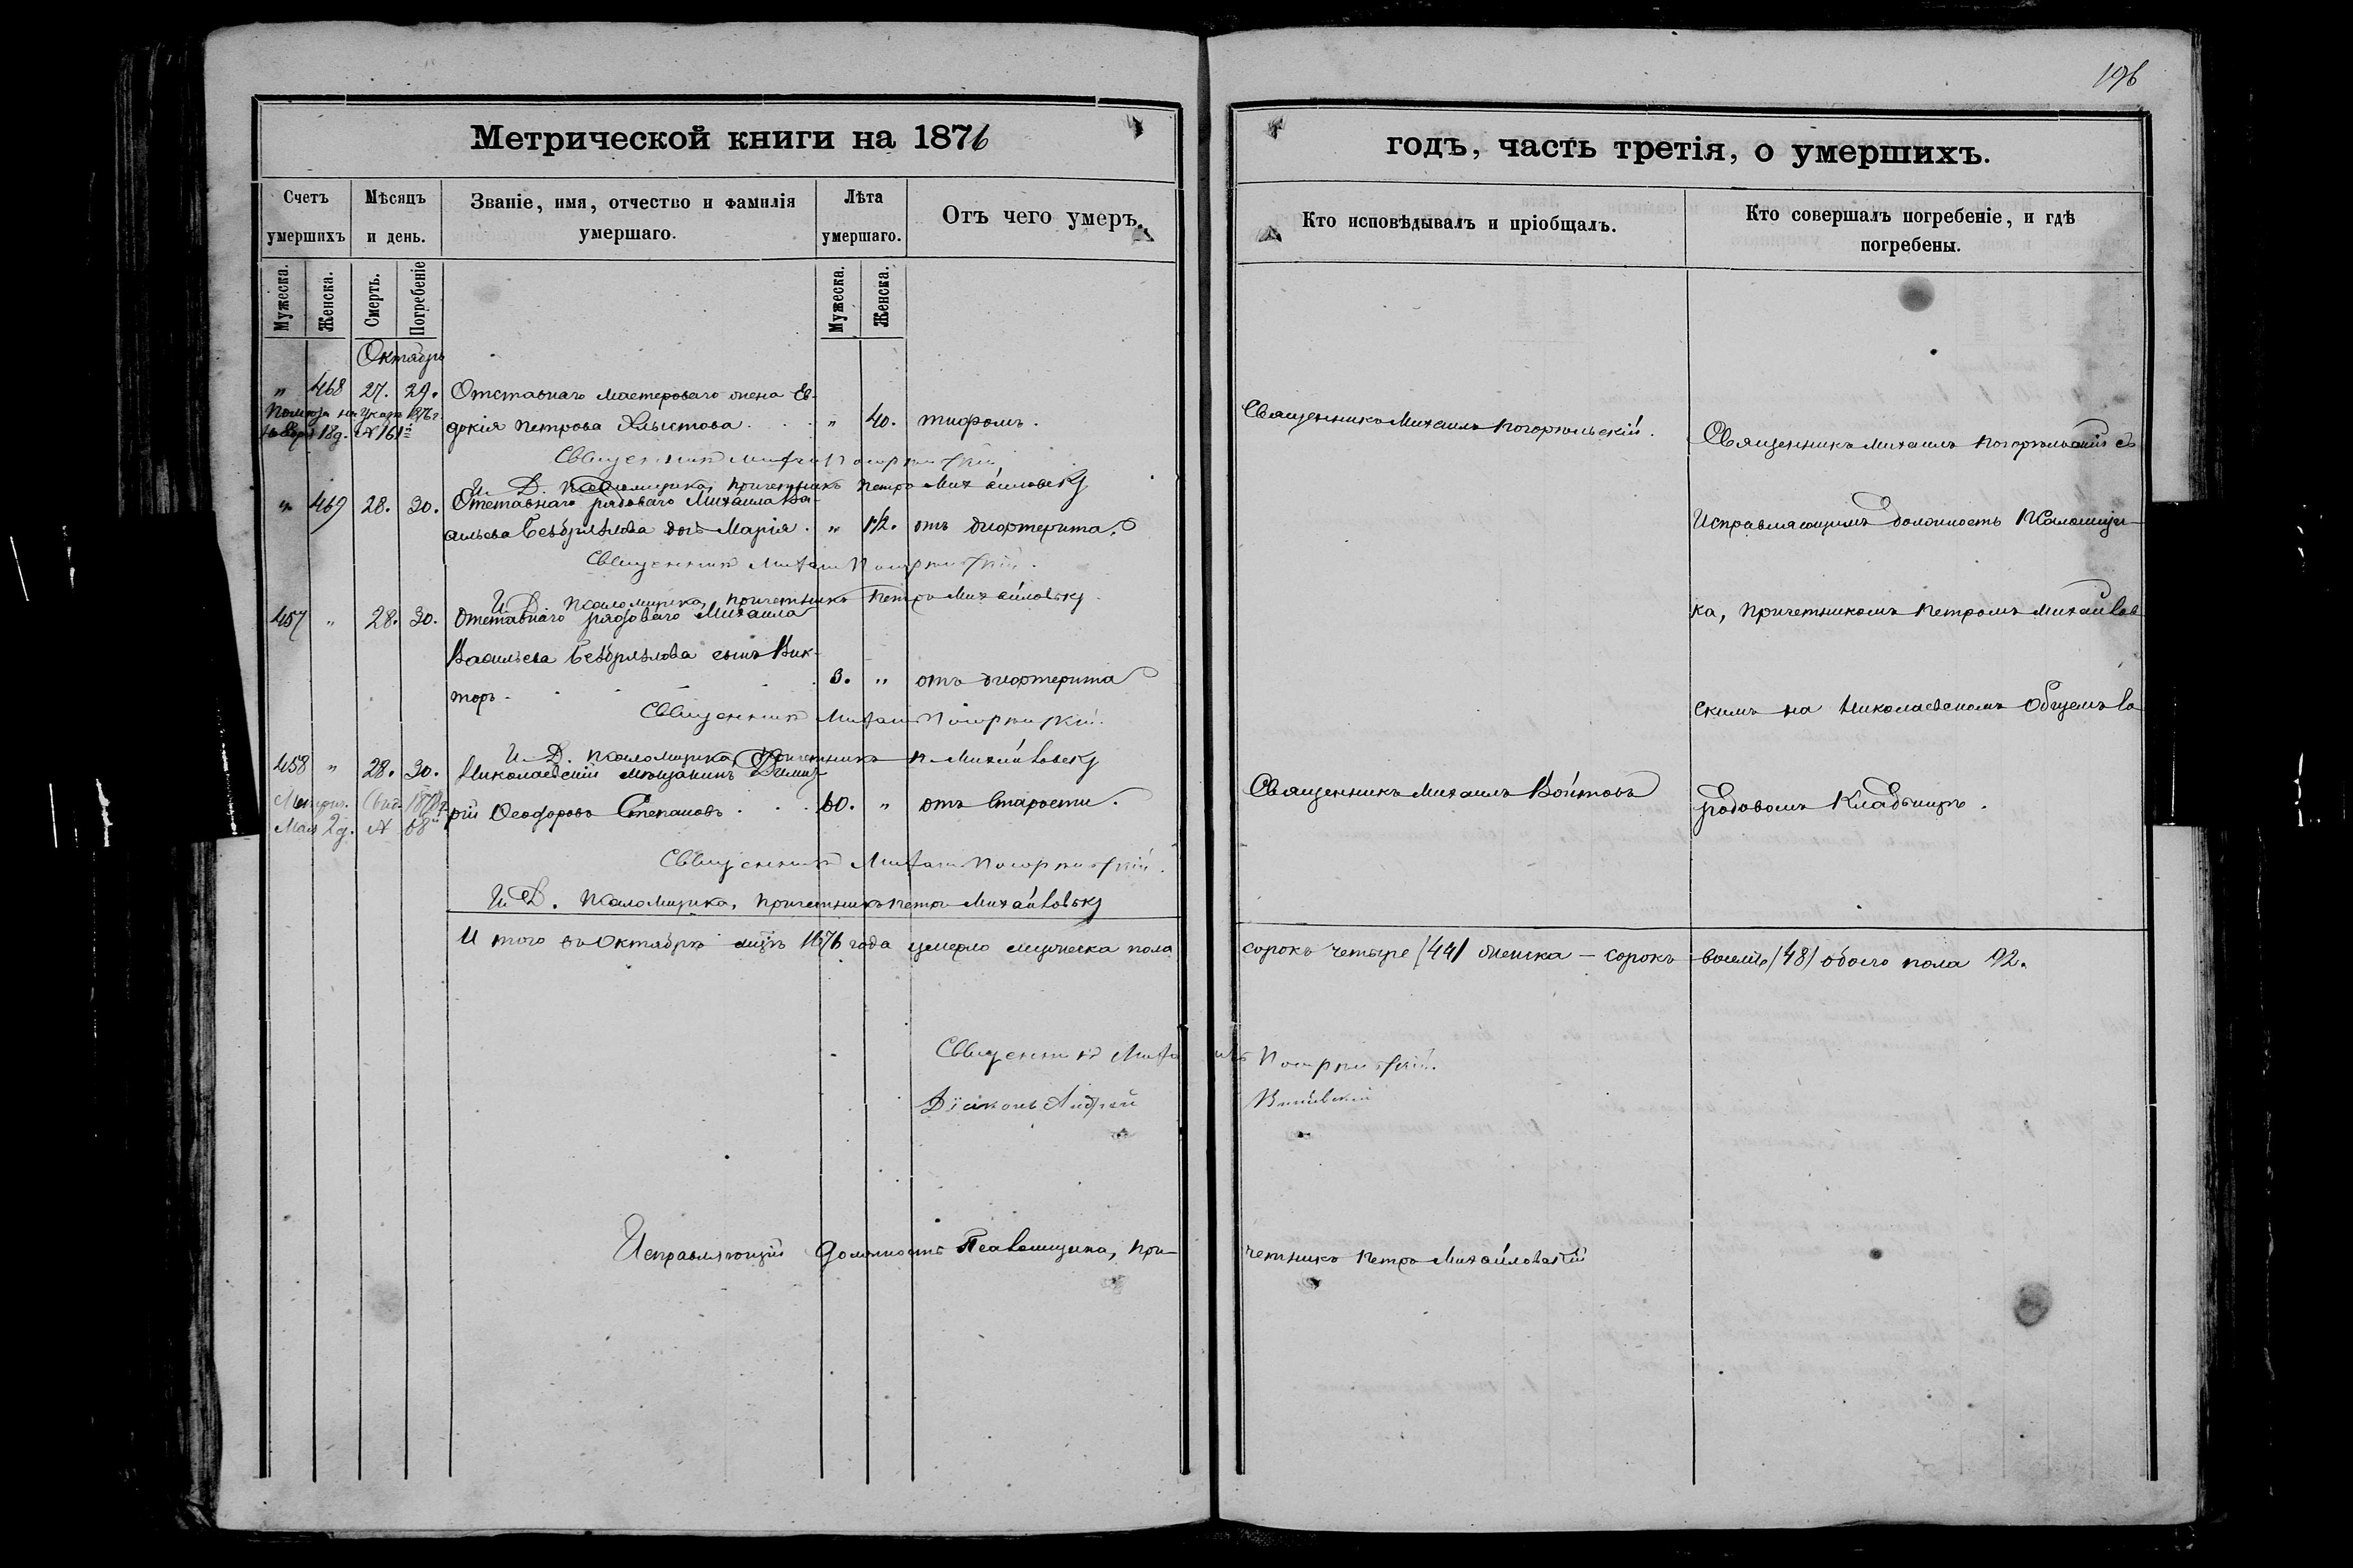 196
Метрической книги на 1876
годъ, часть третія, о умершихъ.
Счетъ умершихъ
Мѣсяцъ и день.
Званіе, имя, отчество и фамилія умершаго.
Лѣта умершаго.
Отъ чего умеръ.
Кто исповѣдывалъ и пріобщалъ.
Кто совершалъ погребеніе, и гдѣ погребены.
Мужеска. Женска. Смерть. Погребеніе Мужеска. Женска.
Октябрь
" 468 27. 29. Отставнаго мастероваго жена Ев-
докія Петрова Хлыстова. " 40. тифомъ.
1876 г.
18 д. № 161
Священникъ Михаилъ Погорѣльскій.
Священникъ Михаилъ Погорѣльскій съ
Священникъ Михаилъ Погорѣльскій
И. Д. Псаломщика, Причетникъ Петръ Михайловскій
" 469 28. 30. Отставнаго рядоваго Михаила Ва-
сильева дочь Марія. " 1/2. отъ дифтерита.
Исправляющимъ должность Псаломщи-
Священникъ Михаилъ Погорѣльскій.
И. Д. Псаломщика, Причетникъ Петръ Михайловскій
457 " 28. 30. Отставнаго рядоваго Михаила
Васильева сынъ Вик-
торъ. 3. " отъ дифтерита
ка, Причетникомъ Петромъ Михайлов
Священникъ Михаилъ Погорѣльскій.
скимъ на Николаевскомъ Общемъ Го
И. Д. Псаломщика, Причетникъ П. Михайловскій
458 " 28. 30. Николаевскій мѣщанинъ Димит
рій Ѳеодоровъ Степановъ. 60. " отъ старости.
Мая 2 д. № 68
Священникъ Михаилъ Войтовъ
родовомъ Кладбищѣ.
Священникъ Михаилъ Погорѣльскій.
И. Д. Псаломщика, Причетникъ Петръ Михайловскій
И того въ Октябрѣ мцѣ 1876 года умерло мужеска пола сорокъ четыре (44) женска - сорокъ восемь (48) обоего пола 92.
Священникъ Михаилъ Погорѣльскій.
Діаконъ Андрей
Исправляющій должность Псаломщика, Причетникъ Петръ Михайловскій